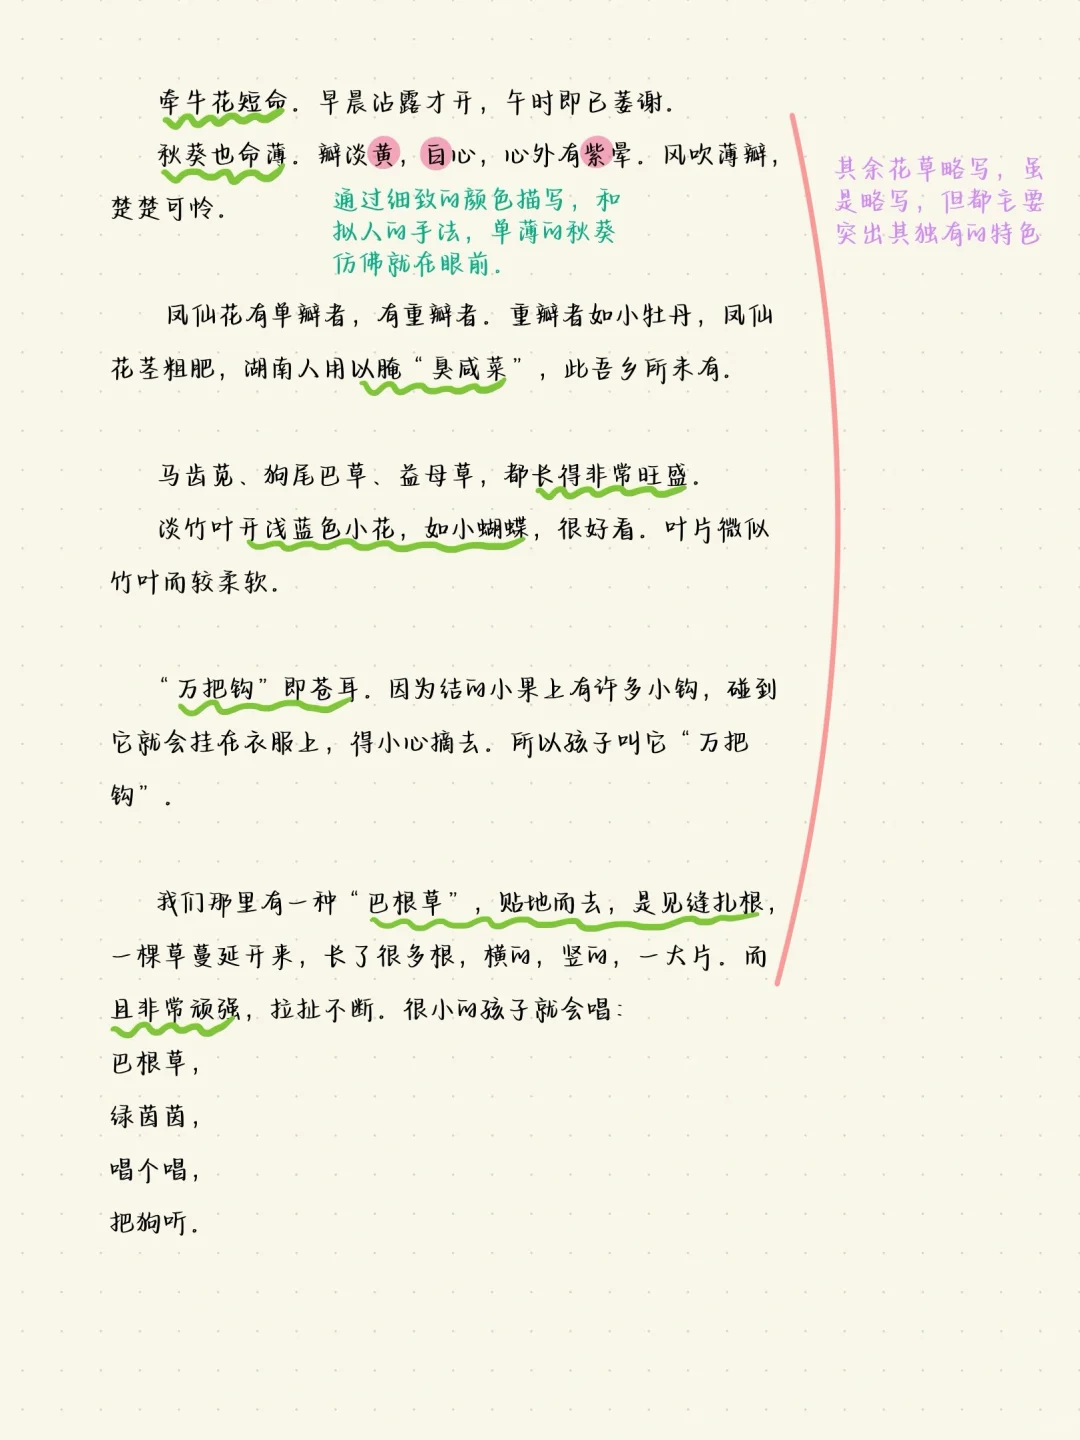 牵牛花短命. 早晨沾露才开, 午时即已萎谢.
秋葵也命薄. 瓣淡黄, 白心, 心外有紫晕. 风吹薄瓣,
楚楚可怜.
通过细致的颜色描写, 和
拟人的手法, 单薄的秋葵
仿佛就在眼前.
其余花草略写, 虽
是略写, 但都主要
突出其独有的特色
凤仙花有单瓣者, 有重瓣者. 重瓣者如小牡丹, 凤仙
花茎粗肥, 湖南人用以腌“臭咸菜”, 此吾乡所未有.
马齿苋、狗尾巴草、益母草, 都长得非常旺盛.
淡竹叶开浅蓝色小花, 如小蝴蝶, 很好看. 叶片微似
竹叶而较柔软.
“万把钩”即苍耳. 因为结的小果上有许多小钩, 碰到
它就会挂在衣服上, 得小心摘去. 所以孩子叫它“万把
钩”.
我们那里有一种“巴根草”, 贴地而去, 是见缝扎根,
一棵草蔓延开来, 长了很多根, 横的, 竖的, 一大片. 而
且非常顽强, 拉扯不断. 很小的孩子就会唱:
巴根草,
绿茵茵,
唱个唱,
把狗听.